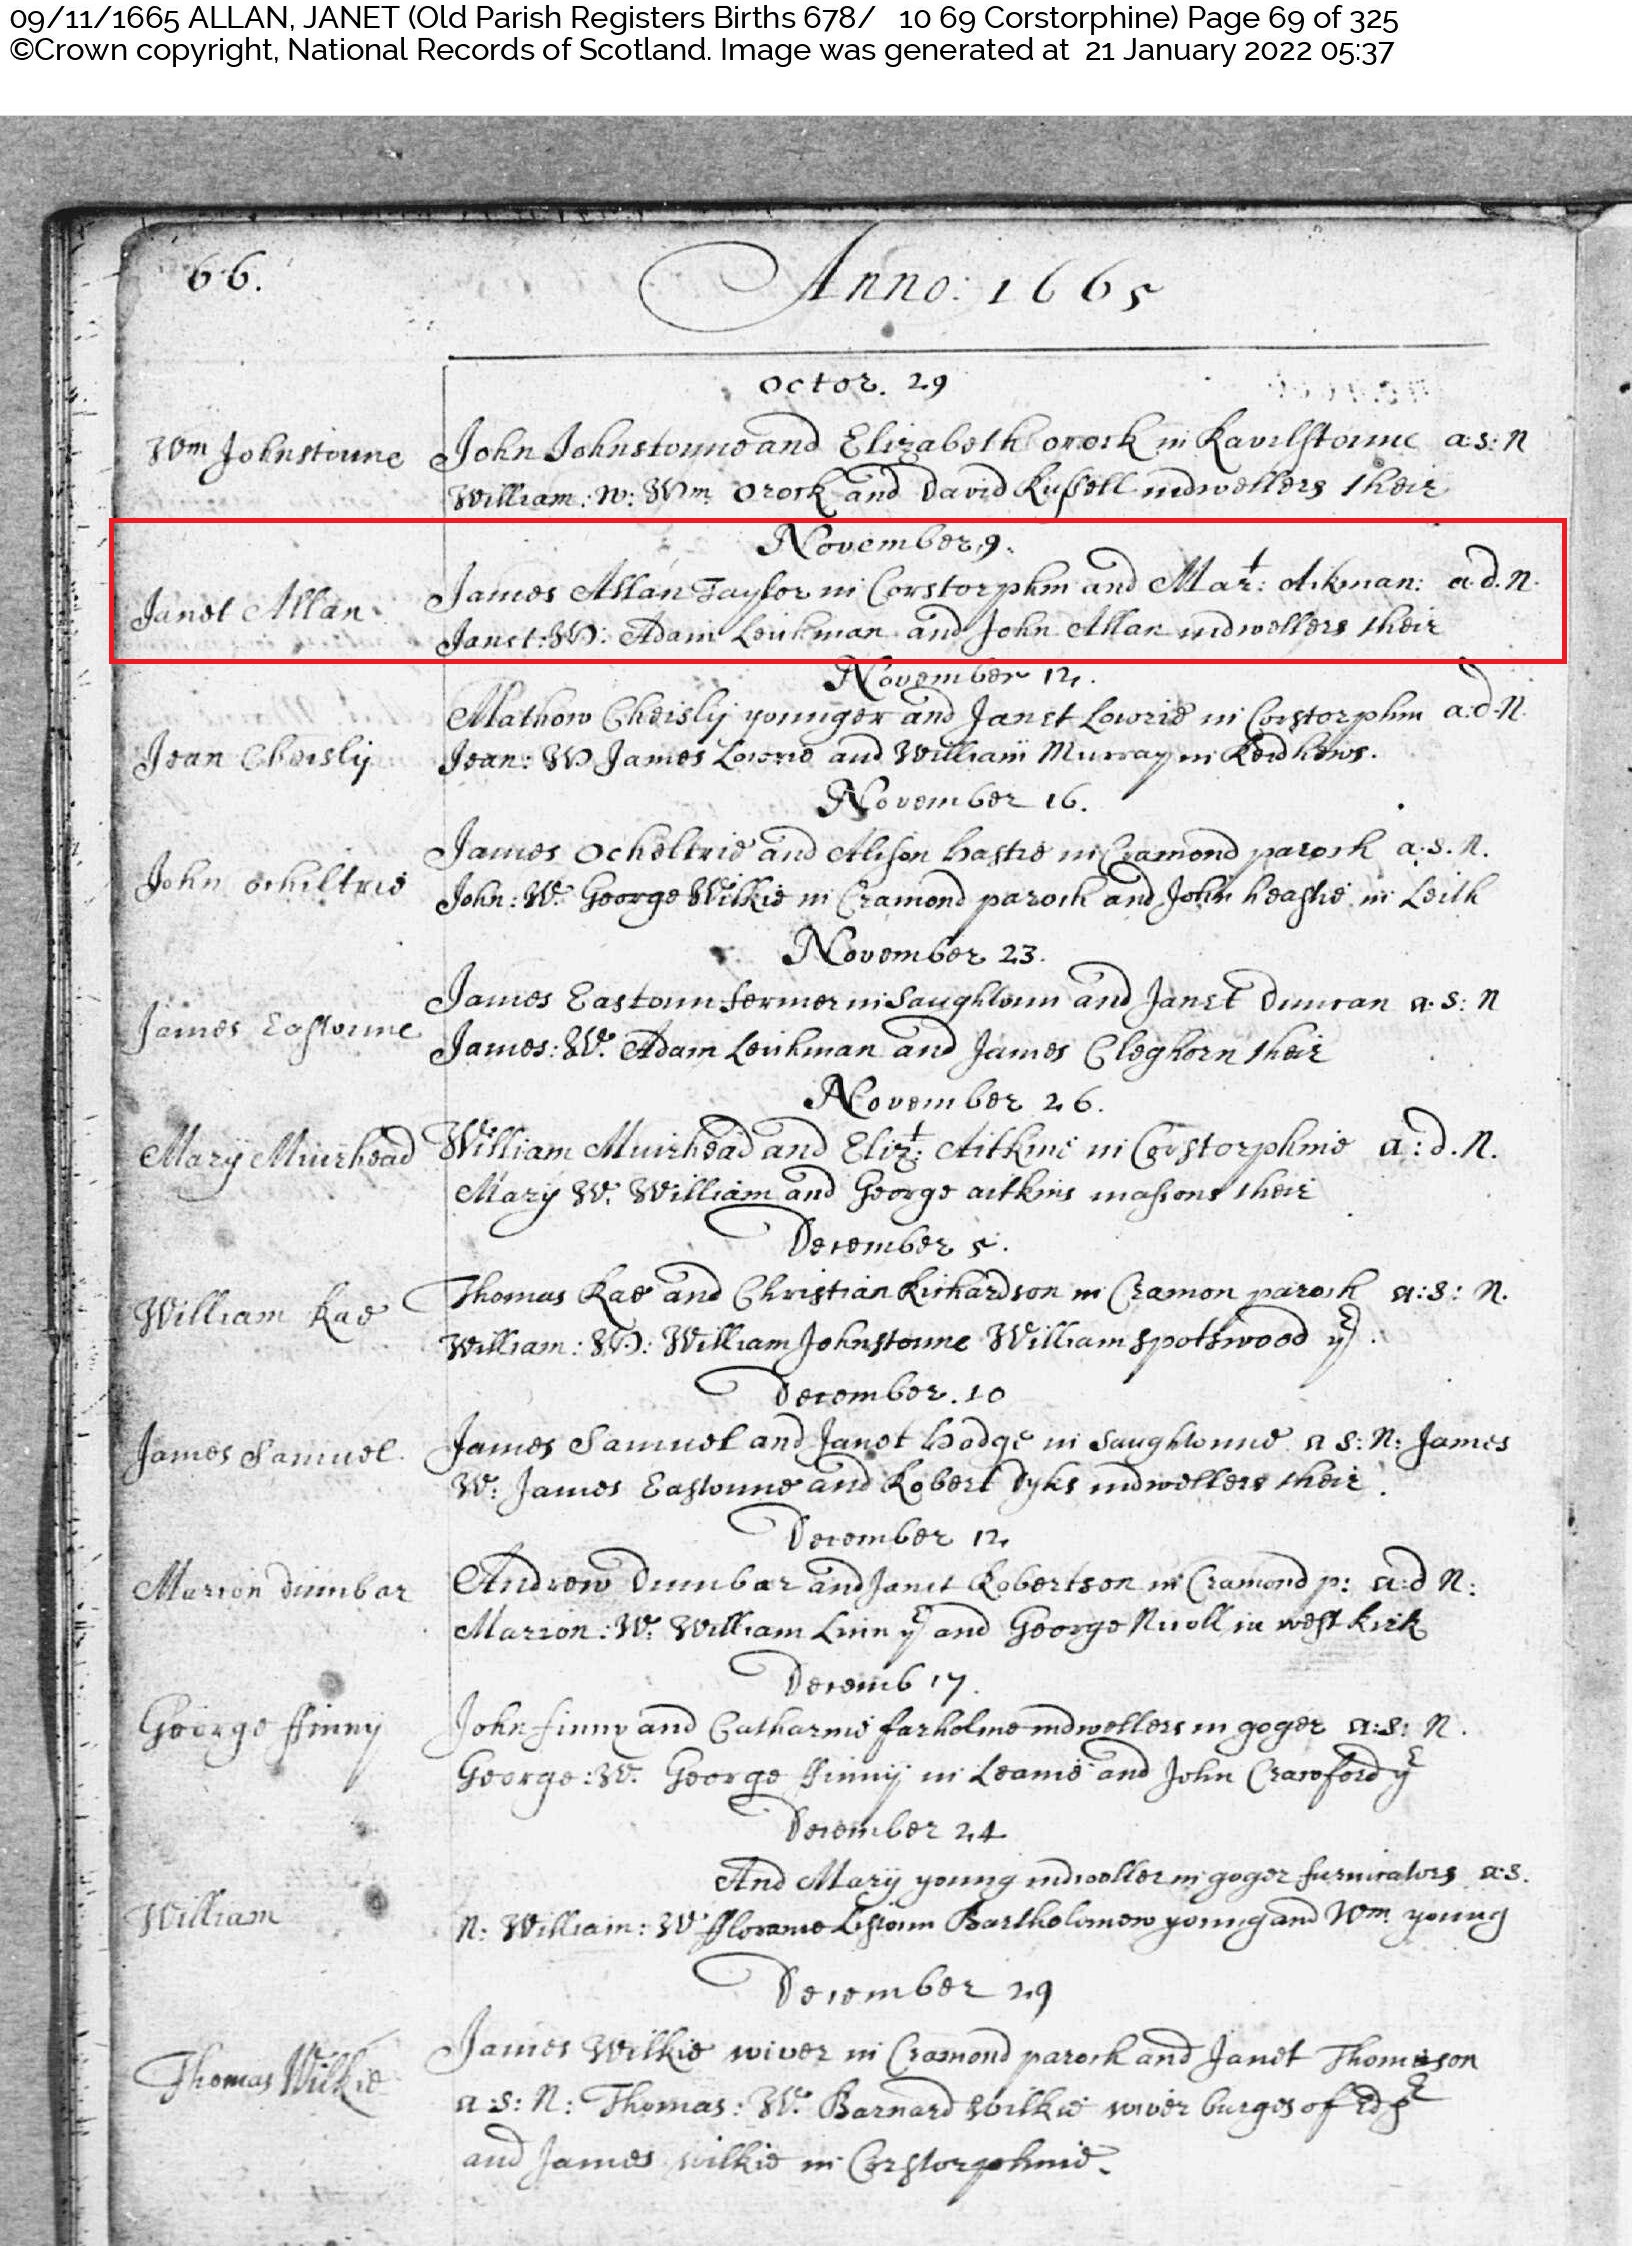 09/11/1665 ALLAN, JANET (Old Parish Registers Births 678/ 10 69 Corstorphine) Page 69 of 325
©Crown copyright, National Records of Scotland. Image was generated at 21 January 2022 05:37
66. Anno: 1665
octor. 29
Wm Johnstoune John Johnstoune and Elizabeth orock in Ravelstoune a:s:N
William: W: Wm orock and David Russell indwellers their
November 9.
Janet Allan James Allan Taylor in Corstorphin and Mart: Aikman: a.d.N.
Janet: W: Adam Leishman and John Allan indwellers their
November 12.
Jean Cheisly Mathow Cheisly younger and Janet Lowrie in Corstorphin a:d.N.
Jean: W James Lowrie and William Murray in Reidhews.
November 16.
John ochiltrie James ocheltrie and Alison hastie in Cramond paroch a.s.N.
John: W: George Wilkie in Cramond paroch and John heastie in Leith
November 23.
James Eastoune James Eastoun fermer in Saughtoun and Janet Duncan a.s:N
James: W: Adam Leishman and James Cleghorn their
November 26.
Mary Muirhead William Muirhead and Elizt: Aitkine in Corstorphine a:d.N.
Mary W: William and George aitkins masons their
December 5.
William Rae Thomas Rae and Christian Richardson in Cramon paroch a:s:N.
William: W: William Johnstoune William Spotswood yr.
December. 10
James Samuel. James Samuel and Janet Hodge in Saughtoune a s:N: James
W: James Eastoune and Robert Dyks indwellers their.
December 12
Marion dunbar Andrew Dunbar and Janet Robertson in Cramond p: a:d N:
Marion: W: William Linn yr and George Nicoll in west kirk
Decemb 17.
George ffinny John finny and Catharine fairholme indwellers in goger a:s:N.
George: W: George ffinny in Leanie and John Crawford yr
December 24
And Mary young indweller in goger furnicators a:s.
William N: William: W Bartholomew young and Wm. young
December 29
Thomas Wilkie James Wilkie wiver in Cramond paroch and Janet Thomson
a:s:N: Thomas: W: Barnard Wilkie wiver burges of Edr
and James wilkie in Corstorphine.